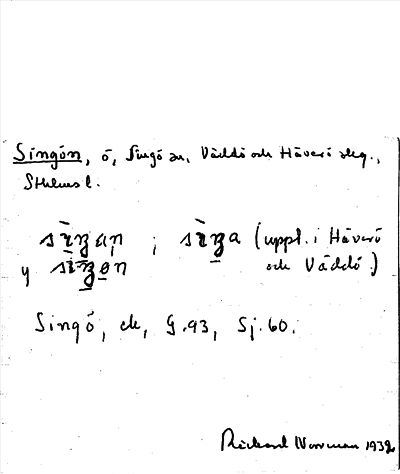 Singön, ö, Singö sn, Väddö och Häverö skg.,
Sthlms l.
(uppl. i Häverö
y och Väddö.)
Singö, ek, G.93, Sj.60.
Rickard Norrman 1932